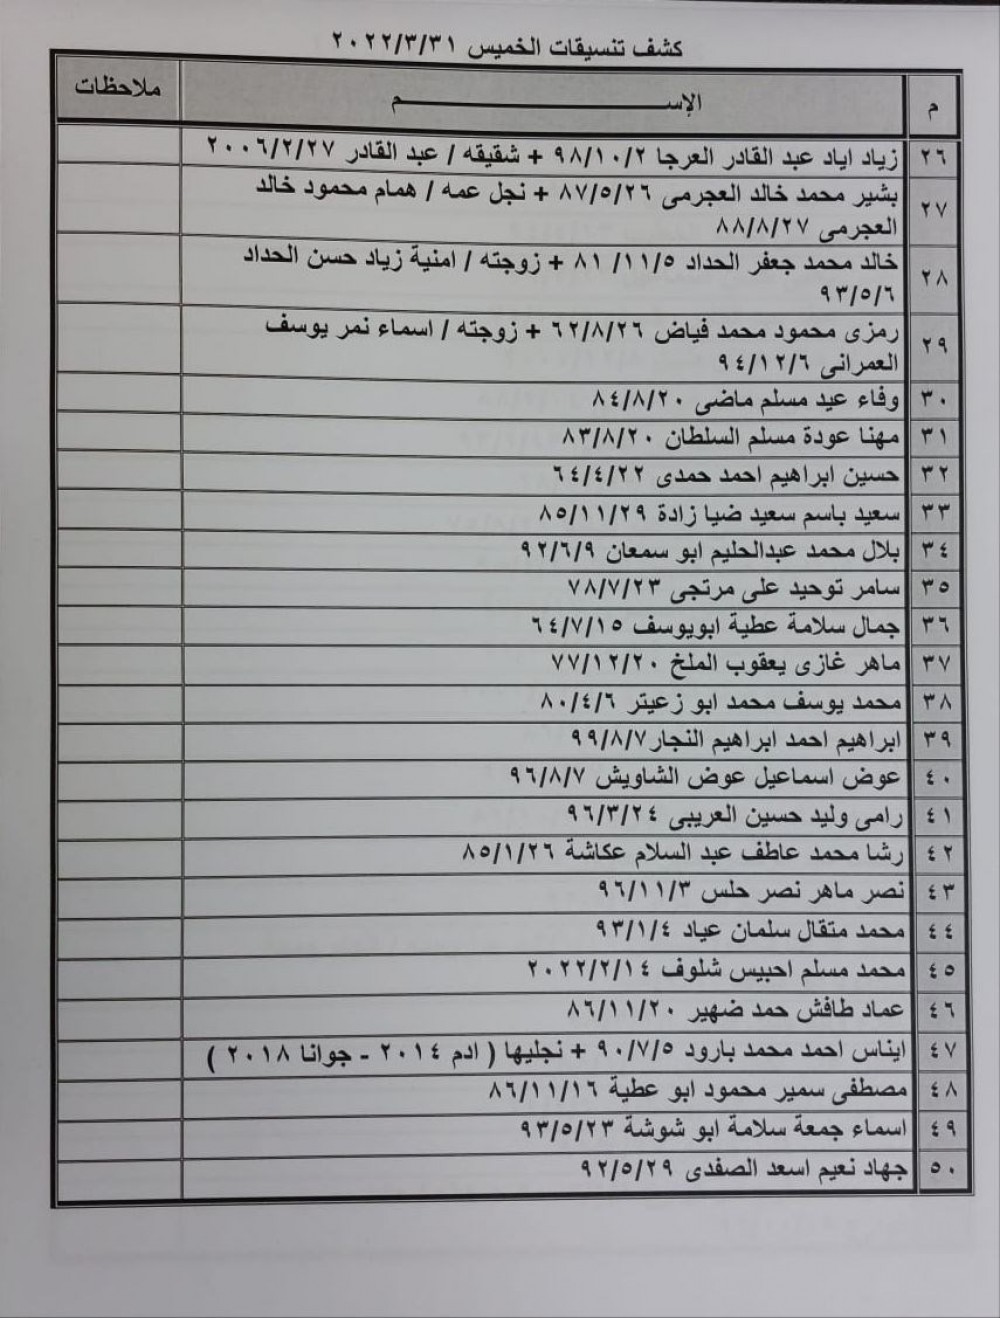 كشف تنسيقات الخميس ٢٠٢٢/٣/٣١
م الإســـــــــــــــم ملاحظات
٢٦ زياد اياد عبد القادر العرجا ٩٨/١٠/٢ + شقيقه / عبد القادر ٢٠٠٦/٢/٢٧
٢٧ بشير محمد خالد العجرمى ٨٧/٥/٢٦ + نجل عمه / همام محمود خالد
العجرمى ٨٨/٨/٢٧
٢٨ خالد محمد جعفر الحداد ٨١/١١/٥ + زوجته / امنية زياد حسن الحداد
٩٣/٥/٦
٢٩ رمزى محمود محمد فياض ٦٢/٨/٢٦ + زوجته / اسماء نمر يوسف
العمرانى ٩٤/١٢/٦
٣٠ وفاء عيد مسلم ماضى ٨٤/٨/٢٠
٣١ مهنا عودة مسلم السلطان ٨٣/٨/٢٠
٣٢ حسين ابراهيم احمد حمدى ٦٤/٤/٢٢
٣٣ سعيد باسم سعيد ضيا زادة ٨٥/١١/٢٩
٣٤ بلال محمد عبدالحليم ابو سمعان ٩٢/٦/٩
٣٥ سامر توحيد على مرتجى ٧٨/٧/٢٣
٣٦ جمال سلامة عطية ابويوسف ٦٤/٧/١٥
٣٧ ماهر غازى يعقوب الملخ ٧٧/١٢/٢٠
٣٨ محمد يوسف محمد ابو زعيتر ٨٠/٤/٦
٣٩ ابراهيم احمد ابراهيم النجار٩٩/٨/٧
٤٠ عوض اسماعيل عوض الشاويش ٩٦/٨/٧
٤١ رامى وليد حسين العريبى ٩٦/٣/٢٤
٤٢ رشا محمد عاطف عبد السلام عكاشة ٨٥/١/٢٦
٤٣ نصر ماهر نصر حلس ٩٦/١١/٣
٤٤ محمد متقال سلمان عياد ٩٣/١/٤
٤٥ محمد مسلم احبيس شلوف ٢٠٢٢/٢/١٤
٤٦ عماد طافش حمد ضهير ٨٦/١١/٢٠
٤٧ ايناس احمد محمد بارود ٩٠/٧/٥ + نجليها ( ادم ٢٠١٤ - جوانا ٢٠١٨ )
٤٨ مصطفى سمير محمود ابو عطية ٨٦/١١/١٦
٤٩ اسماء جمعة سلامة ابو شوشة ٩٣/٥/٢٣
٥٠ جهاد نعيم اسعد الصفدى ٩٢/٥/٢٩